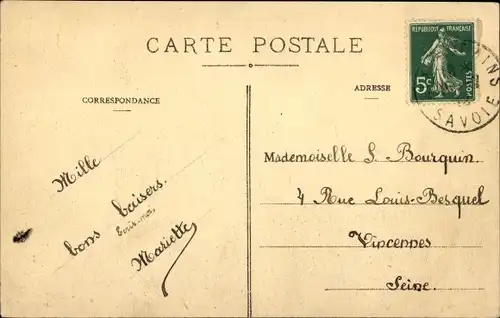 CARTE POSTALE
CORRESPONDANCE
ADRESSE
REPUBLIQUE FRANÇAISE
5c
POSTES
SAVOIE
Mille
bons baisers.
Mariette
Mademoiselle S. Bourquin.
4 Rue Louis-Besquel
Vincennes
Seine.